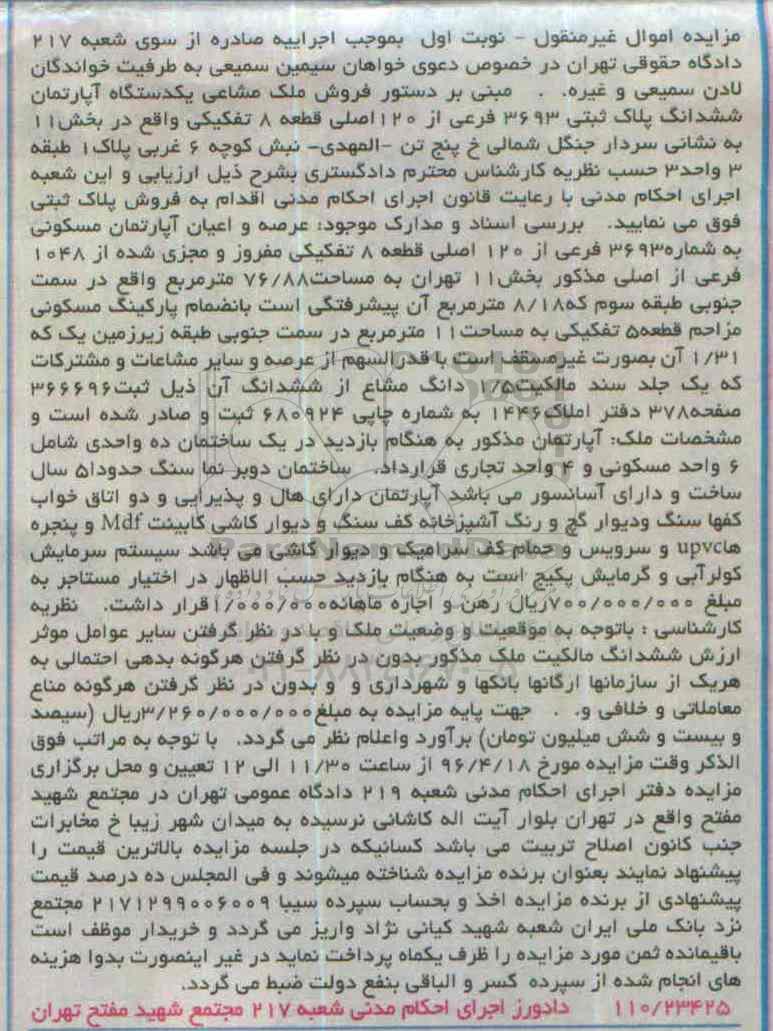 مزایده اموال غیرمنقول - نوبت اول بموجب اجراییه صادره از سوی شعبه ۲۱۷
دادگاه حقوقی تهران در خصوص دعوی خواهان سیمین سمیعی به طرفیت خواندگان
لادن سمیعی و غیره. . مبنی بر دستور فروش ملک مشاعی یکدستگاه آپارتمان
ششدانگ پلاک ثبتی ۳۶۹۳ فرعی از ۱۲۰اصلی قطعه ۸ تفکیکی واقع در بخش۱۱
به نشانی سردار جنگل شمالی خ پنج تن -المهدی- نبش کوچه ۶ غربی پلاک۱ طبقه
۳ واحد۳ حسب نظریه کارشناس محترم دادگستری بشرح ذیل ارزیابی و این شعبه
اجرای احکام مدنی با رعایت قانون اجرای احکام مدنی اقدام به فروش پلاک ثبتی
فوق می نمایید. بررسی اسناد و مدارک موجود: عرصه و اعیان آپارتمان مسکونی
به شماره۳۶۹۳ فرعی از ۱۲۰ اصلی قطعه ۸ تفکیکی مفروز و مجزی شده از ۱۰۴۸
فرعی از اصلی مذکور بخش۱۱ تهران به مساحت۷۶/۸۸ مترمربع واقع در سمت
جنوبی طبقه سوم که۸/۱۸ مترمربع آن پیشرفتگی است بانضمام پارکینگ مسکونی
مزاحم قطعه۵ تفکیکی به مساحت۱۱ مترمربع در سمت جنوبی طبقه زیرزمین یک که
۱/۳۱ آن بصورت غیرمسقف است با قدرالسهم از عرصه و سایر مشاعات و مشترکات
که یک جلد سند مالکیت۱/۵ دانگ مشاع از ششدانگ آن ذیل ثبت۳۶۶۶۹۶
صفحه۳۷۸ دفتر املاک۱۴۴۶ به شماره چاپی ۶۸۰۹۲۴ ثبت و صادر شده است و
مشخصات ملک: آپارتمان مذکور به هنگام بازدید در یک ساختمان ده واحدی شامل
۶ واحد مسکونی و ۴ واحد تجاری قرارداد. ساختمان دوبر نما سنگ حدودا۵ سال
ساخت و دارای آسانسور می باشد آپارتمان دارای هال و پذیرایی و دو اتاق خواب
کفها سنگ ودیوار گچ و رنگ آشپزخانه کف سنگ و دیوار کاشی کابینت Mdf و پنجره
هاupvc و سرویس و حمام کف سرامیک و دیوار کاشی می باشد سیستم سرمایش
کولرآبی و گرمایش پکیج است به هنگام بازدید حسب الاظهار در اختیار مستاجر به
مبلغ ۷۰۰/۰۰۰/۰۰۰ریال رهن و اجاره ماهانه۱/۰۰۰/۰۰۰قرار داشت. نظریه
کارشناسی : باتوجه به موقعیت و وضعیت ملک و با در نظر گرفتن سایر عوامل موثر
ارزش ششدانگ مالکیت ملک مذکور بدون در نظر گرفتن هرگونه بدهی احتمالی به
هریک از سازمانها ارگانها بانکها و شهرداری و و بدون در نظر گرفتن هرگونه مناع
معاملاتی و خلافی و. . جهت پایه مزایده به مبلغ۳/۲۶۰/۰۰۰/۰۰۰ریال (سیصد
و بیست و شش میلیون تومان) برآورد واعلام نظر می گردد. با توجه به مراتب فوق
الذکر وقت مزایده مورخ ۹۶/۴/۱۸ از ساعت ۱۱/۳۰ الی ۱۲ تعیین و محل برگزاری
مزایده دفتر اجرای احکام مدنی شعبه ۲۱۹ دادگاه عمومی تهران در مجتمع شهید
مفتح واقع در تهران بلوار آیت اله کاشانی نرسیده به میدان شهر زیبا خ مخابرات
جنب کانون اصلاح تربیت می باشد کسانیکه در جلسه مزایده بالاترین قیمت را
پیشنهاد نمایند بعنوان برنده مزایده شناخته میشوند و فی المجلس ده درصد قیمت
پیشنهادی از برنده مزایده اخذ و بحساب سپرده سیبا ۲۱۷۱۲۹۹۰۰۶۰۰۹ مجتمع
نزد بانک ملی ایران شعبه شهید کیانی نژاد واریز می گردد و خریدار موظف است
باقیمانده ثمن مورد مزایده را ظرف یکماه پرداخت نماید در غیر اینصورت بدوا هزینه
های انجام شده از سپرده کسر و الباقی بنفع دولت ضبط می گردد.
۱۱۰/۲۳۴۲۵ دادورز اجرای احکام مدنی شعبه ۲۱۷ مجتمع شهید مفتح تهران